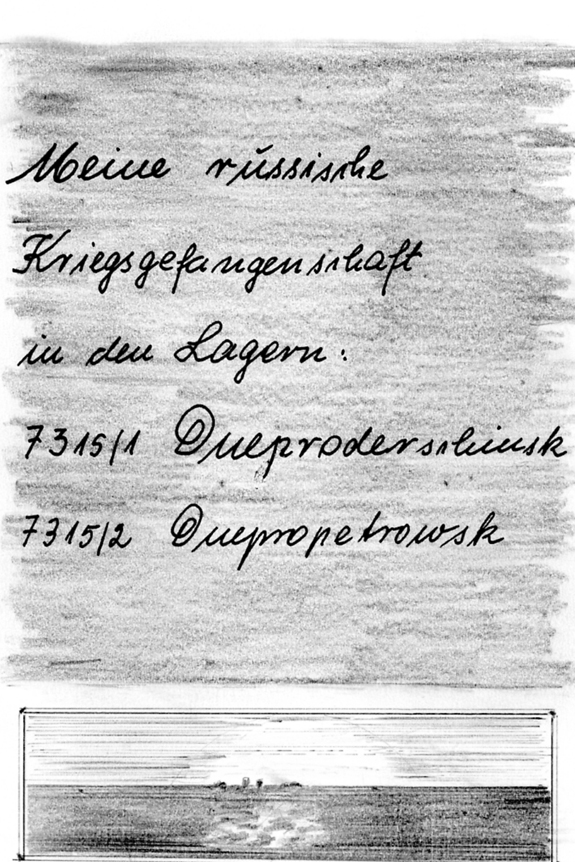 Meine russische
Kriegsgefangenschaft
in den Lagern:
7315/1 Dneproderschinsk
7315/2 Dnepropetrowsk